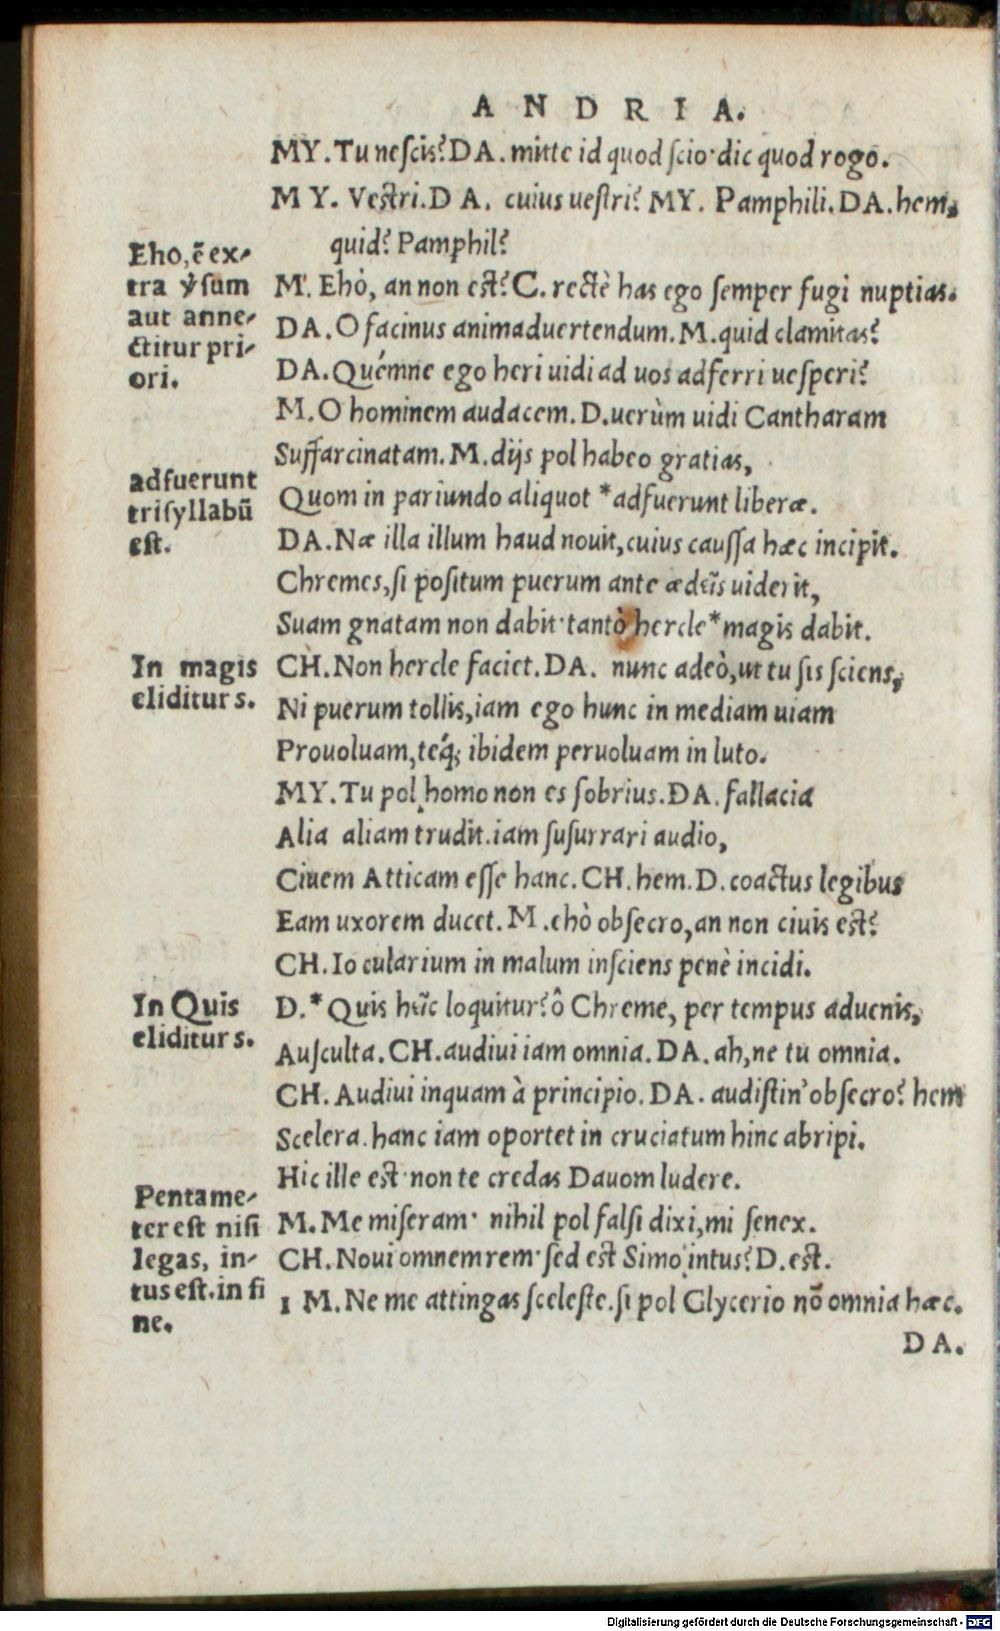 ANDRIA.
MY. Tu neſcis? DA. mitte id quod ſcio· dic quod rogo.
MY. Veſtri. DA. cuius ueſtri? MY. Pamphili. DA. hem,
quid? Pamphil?
Eho, ē ex-
tra ỹſum
aut anne-
ctitur pri-
ori.
M. Ehò, an non eſt? C. rectè has ego ſemper fugi nuptias.
DA. O facinus animaduertendum. M. quid clamitas?
DA. Quémne ego heri uidi ad uos adferri ueſperi?
M. O hominem audacem. D. uerùm uidi Cantharam
Suffarcinatam. M. dijs pol habeo gratias,
adfuerunt
triſyllabū
eſt.
Quom in pariundo aliquot *adfuerunt liberæ.
DA. Næ illa illum haud nouit, cuius cauſſa hæc incipit.
Chremes, ſi poſitum puerum ante ædeīs uiderit,
Suam gnatam non dabit· tantò hercle *magis dabit.
In magis
eliditur s.
CH. Non hercle faciet. DA. nunc adeò, ut tu ſis ſciens,
Ni puerum tollis, iam ego hunc in mediam uiam
Prouoluam, teq́; ibidem peruoluam in luto.
MY. Tu pol homo non es ſobrius. DA. fallacia
Alia aliam trudit. iam ſuſurrari audio,
Ciuem Atticam eſſe hanc. CH. hem. D. coactus legibus
Eam uxorem ducet. M. ehò obſecro, an non ciuis eſt?
CH. Iocularium in malum inſciens penè incidi.
In Quis
eliditur s.
D. *Quis hīc loquitur? ô Chreme, per tempus aduenis,
Auſculta. CH. audiui iam omnia. DA. ah, ne tu omnia.
CH. Audiui inquam à principio. DA. audiſtin' obſecro? hem
Scelera. hanc iam oportet in cruciatum hinc abripi.
Hic ille eſt· non te credas Dauom ludere.
Pentame-
ter eſt niſi
legas, in-
tus eſt. in fi
ne.
M. Me miſeram· nihil pol falſi dixi, mi ſenex.
CH. Noui omnem rem· ſed eſt Simo intus? D. eſt.
1 M. Ne me attingas ſceleſte. ſi pol Glycerio nō omnia hæc.
DA.
Digitalisierung gefördert durch die Deutsche Forschungsgemeinschaft - DFG